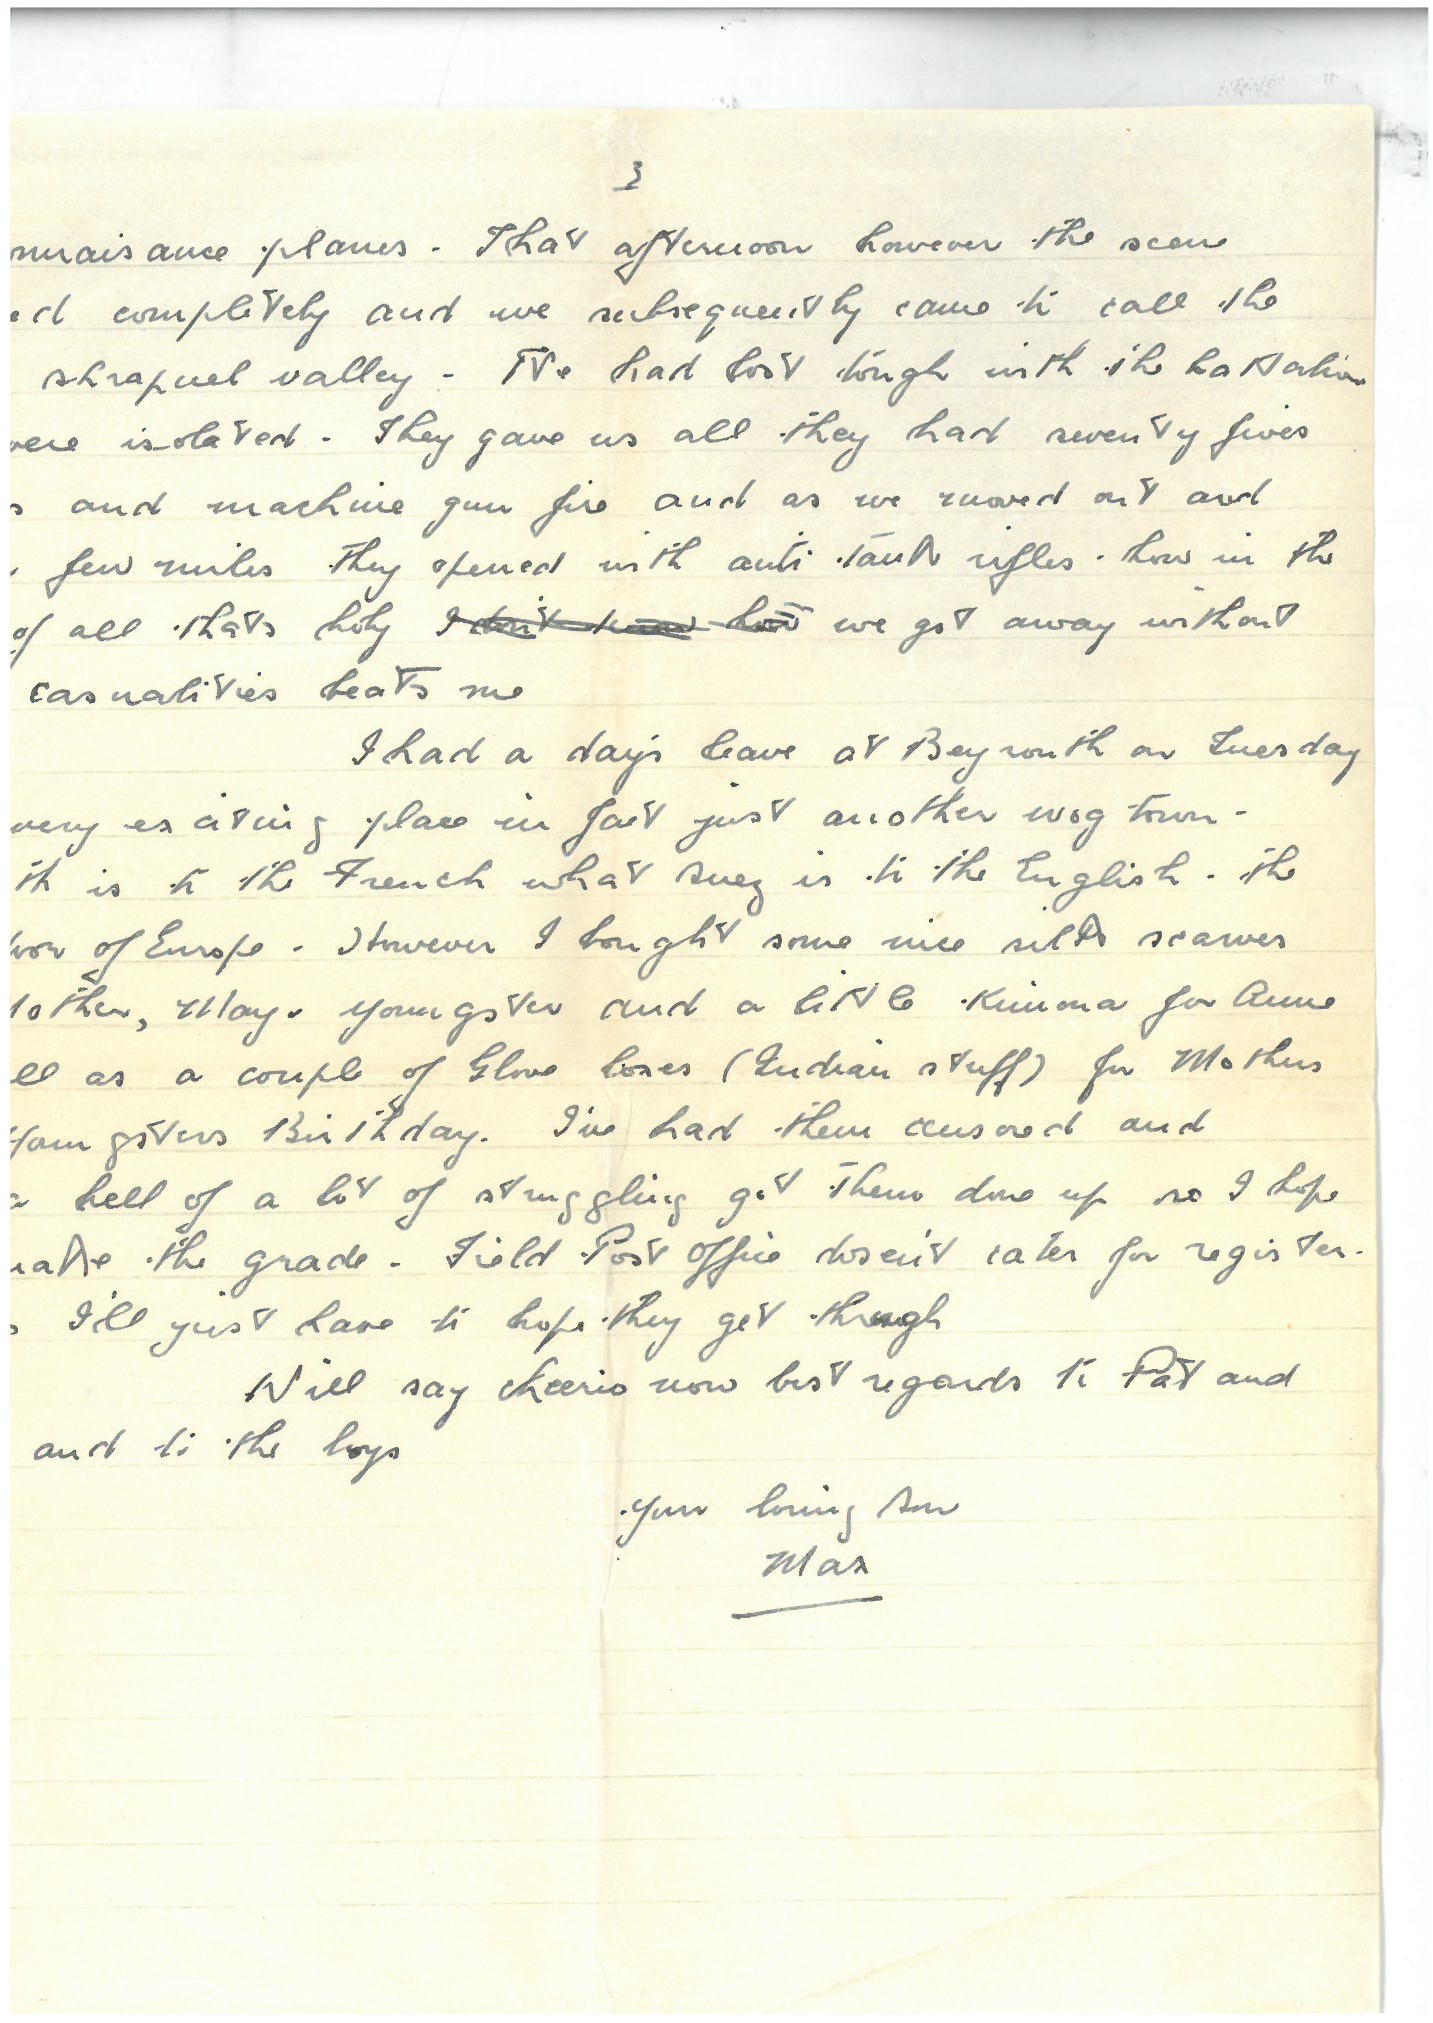 3
nnaisance planes. That afternoon however the scene
ed completely and we subsequently came to call the
shrapnel valley. We had lost tough with the battalion
were isolated. They gave us all they had seventy fives
s and machine gun fire and as we moved out and
few miles they opened with anti tank rifles. how in the
of all thats holy I don't know how we got away without
casualities beats me
I had a days leave at Beyrouth on Tuesday
very exciting place in fact just another wog town.
th is to the French what Suez is to the English. the
of Europe. However I bought some nice silk scarves
other, May. youngster and a little Kimona for Anne
ll as a couple of Glove boxes (Indian stuff) for Mothers
youngsters Birthday. I've had them censored and
a hell of a lot of struggling got them done up so I hope
make the grade. Field Post Office dosen't cater for register.
s I'll just have to hope they get through
Will say cheerio now best regards to Pat and
and to the boys
Your loving Son
Max